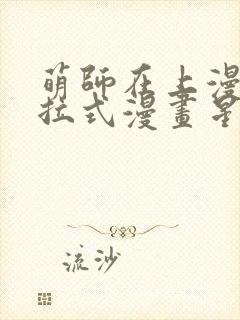 萌師在上漫
拉式漫畫星
流沙